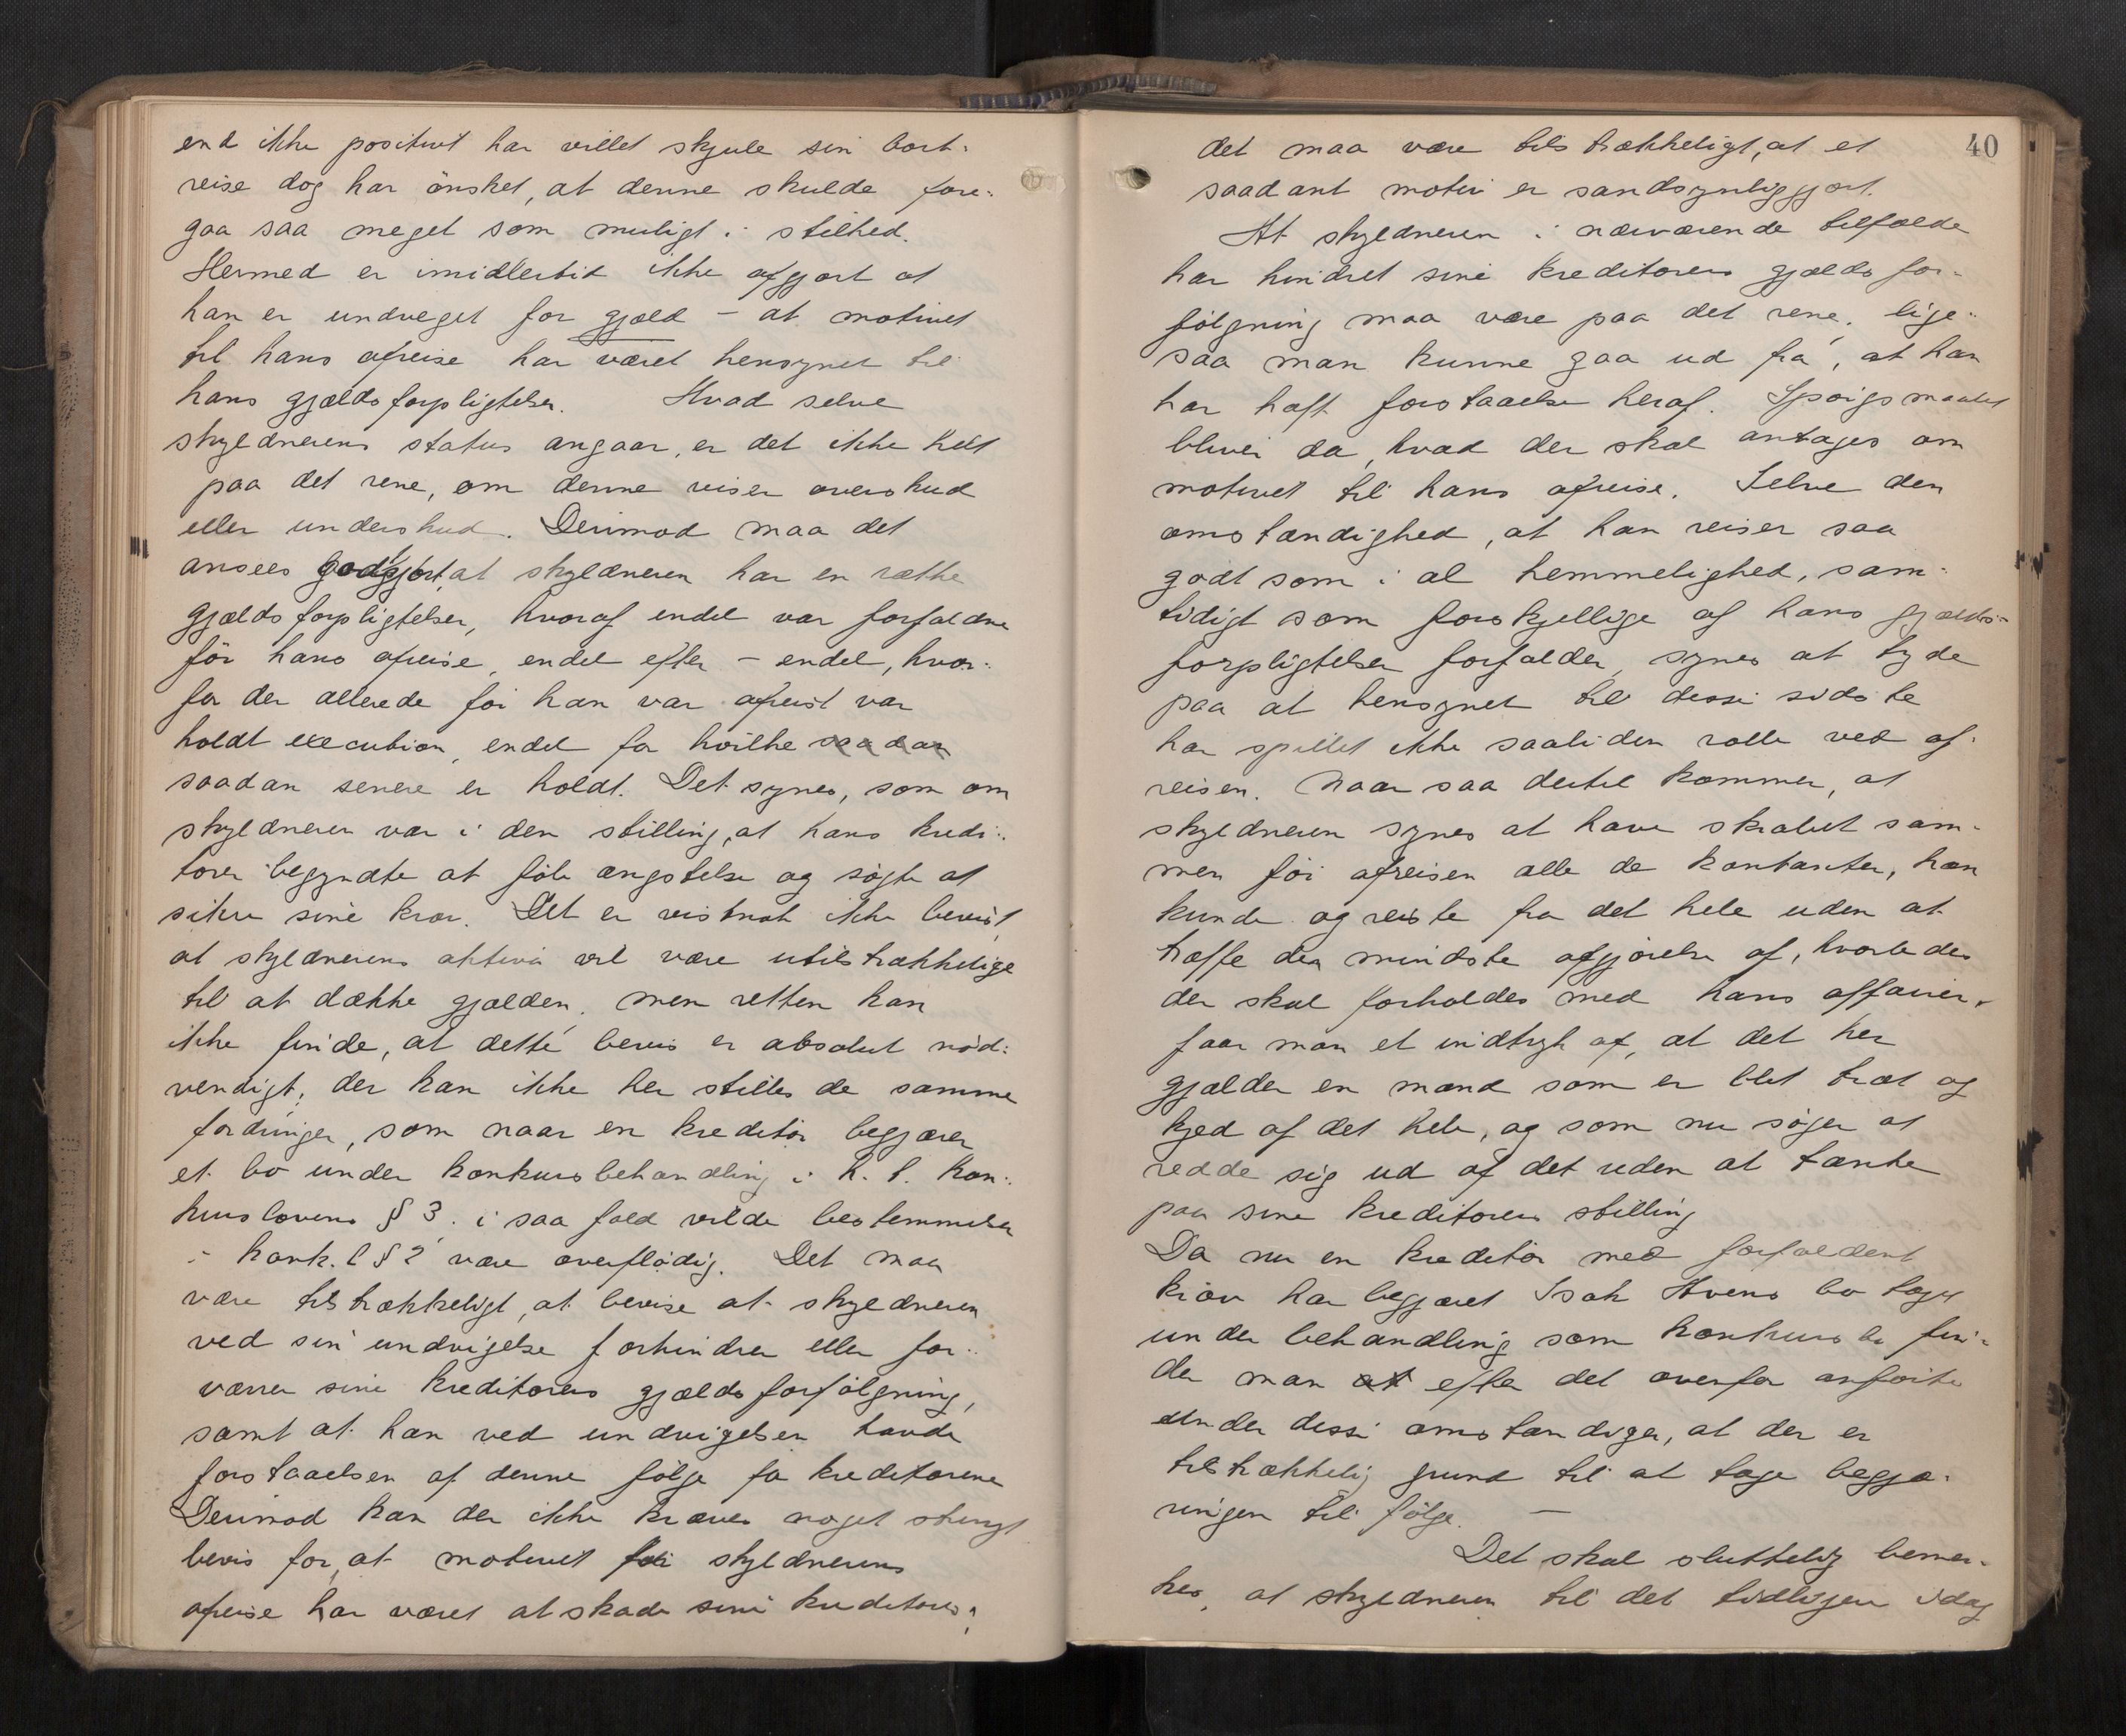 end ikke positivt har villet skjule sin bort-
reise dog har ønsket, at denne skulde fore-
gaa saa meget som muligt i stilhed.
Hermed er imidlertid ikke afgjort at
han er undveget for gjæld - at motivet
til hans afreise har været hensynet til
hans gjældsforpligtelser. Hvad selve
skyldnerens status angaar, er det ikke helt
paa det rene, om denne viser overskud
eller underskud. Derimod maa det
ansees godtgjort, at skyldneren har en række
gjældsforpligtelser, hvoraf endel var forfaldne
før hans afreise, endel efter - endel, hvor-
for der allerede før han var afreist var
holdt execution, endel for hvilke saadan
saadan senere er holdt. Det synes, som om
skyldneren var i den stilling, at hans kredi-
torer begyndte at føle ængstelse og søgte at
sikre sine krav. Det er vistnok ikke bevist,
at skyldnerens aktiva vil være utilstrækkelige
til at dække gjælden, men retten kan
ikke finde, at dette bevis er absolut nød-
vendigt, der kan ikke her stilles de samme
fordringer, som naar en kreditor begjærer
et bo under konkursbehandling i h. t. kon-
kurslovens § 3. i saa fald vilde bestemmelsen
i konk. l § 2 være overflødig. Det maa
være tilstrækkeligt, at bevise at skyldneren
ved sin undvigelse forhindrer eller for-
værrer sine kreditorers gjældsforfølgning,
samt at han ved undvigelsen havde
forstaaelsen af denne følge for kreditorerne
Derimod kan der ikke kræves noget strengt
bevis for, at motivet for skyldnerens
afreise har været at skade sine kreditorer,
40
det maa være tilstrækkeligt, at et
saadant motiv er sandsynliggjort.
At skyldneren i nærværende tilfælde
har hindret sine kreditorers gjældsfor-
følgning maa være paa det rene, lige-
saa man kunne gaa ud fra, at han
har haft forstaaelse heraf. Spørgsmaalet
bliver da, hvad der skal antages om
motivet til hans afreise. Selve den
omstændighed, at han reiser saa
godt som i al hemmelighed, sam-
tidigt som forskjellige af hans gjælds-
forpligtelser forfalder, synes at tyde
paa at hensynet til disse sidste
har spillet ikke saaliden rolle ved af-
reisen. Naar saa dertil kommer, at
skyldneren synes at have skrabet sam-
men før afreisen alle de kontanter, han
kunde og reiste fra det hele uden at
træffe den mindste afgjørelse af, hvorledes
der skal forholdes med hans affairer,
faar man et indtryk af, at det her
gjælder en mand som er blet træt og
kjed af det hele, og som nu søger at
redde sig ud af det uden at tænke
paa sine kreditorers stilling
Da nu en kreditor med forfaldent
krav har begjæret Isak Hvens bo taget
under behandling som konkursbo fin-
der man at efter det ovenfor anførte
under disse omstændiger, at der er
tilstrækkelig grund til at tage begjæ-
ringen til følge. —
Det skal sluttelig bemær-
kes, at skyldneren til det tidligere idag